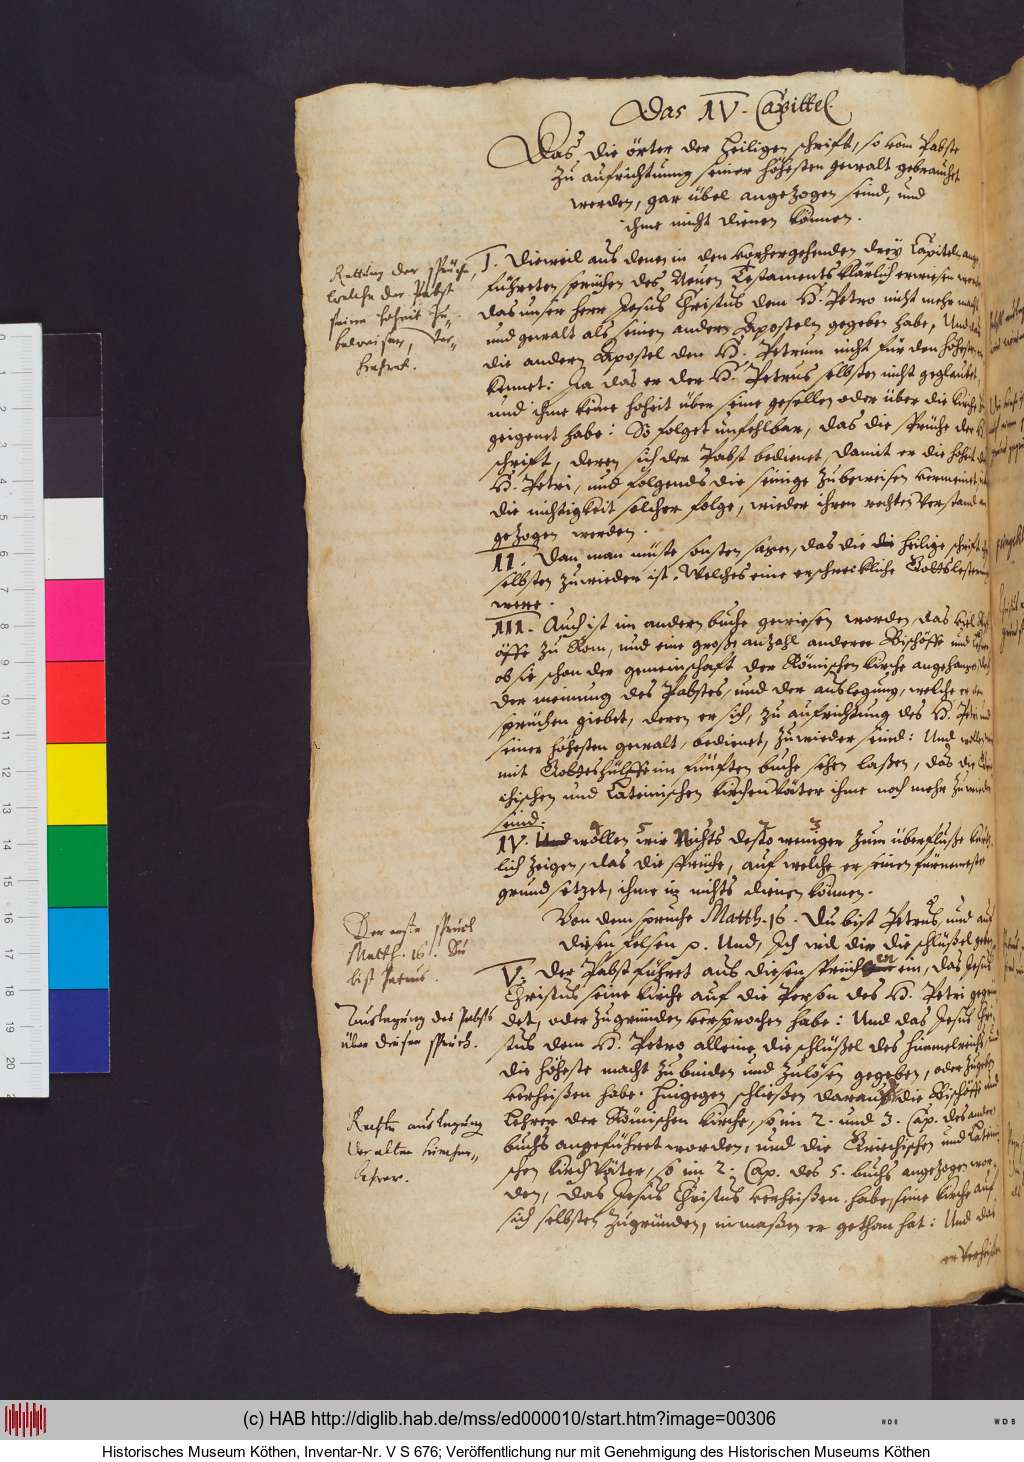 Das IV. Capittel.
Das die örter der heiligen schrifft, so vom Pabste
zu auffrichtung seiner höhesten gewalt gebrauchet
werden, gar übel angezogen seind, und
ihme nicht dienen können.
Rettung der sprüche,
welche der Pabst
seine hoheit zu
beweisen, ver-
kehret.
I. Dieweil aus denen in den vorhergehenden drey Capiteln ange
führeten sprüchen des Neuen Testaments klärlich erwiesen worden
das unser herr Jesus Christus dem H. Petro nicht mehr macht
und gewalt als seinen andern Aposteln gegeben habe, Und das
die andern Apostel den H. Petrum nicht für den höhesten er
kennet: Ja das er der H. Petrus selbsten nicht geglaubet,
und ihme keine hoheit über seine gesellen oder über die kirche zu
geeignet habe: So folget unfehlbar, das die sprüche der H.
schrifft, deren sich der Pabst bedienet, damit er die hoheit des
H. Petri, und folgends die seinige zubeweisen vermeinet,
die nichtigkeit solcher folge, wieder ihren rechten verstand an
gezogen werden.
II. Dan man müste sonsten sagen, das die heilige schrifft ihr
selbsten zuwieder ist. Welches eine erschreckliche Gotteslesterung
were.
III. Auch ist im andern buche gewiesen worden, das viel Bisch
öffe zu Rom, und eine große anzahl anderer Bischöffe und Lehrer
ob sie schon der gemeinschafft der Römischen kirche angehangen, doch
der meinung des Pabstes, und der auslegung, welche er den
sprüchen giebet, deren er sich, zu auffrichtung des H. Petri und
seiner höhesten gewalt, bedienet, zuwieder seind: Und wollen wir
mit Gotteshülffe im fünfften buche sehen laßen, das die Grie
chischen und Lateinischen kirchenväter ihme noch mehr zuwieder
seind.
IV. Und wollen wir Nichts desto weniger zum überfluße kürtz
lich zeigen, das die sprüche, auf welche er seinen fürnemesten
grund setzet, ihme zu nichts dienen können.
Von dem spruche Matth. 16. Du bist Petrus, und auf
diesen felsen p. Und, Ich wil dir die schlüßel geben
Der erste spruch
Matth. 16. Du
bist Petrus.
V. Der Pabst führet aus diesen sprüchen ein, das Jesus
Christus seine kirche auf die Person des H. Petri gegrün
det, oder zugründen versprochen habe: Und das Jesus Chri
stus dem H. Petro alleine die schlüßel des himmelreichs, und
die höheste macht zu binden und zulösen gegeben, oder zugeben
verheißen habe. Hingegen schließen daraus die Bischöffe und
Lehrer der Römischen kirche, so im 2. und 3. Cap. des andern
buchs angeführet worden, und die Griechischen und Lateini
schen kirchväter, so im 2. Cap. des 5. buchs angezogen wor
den, das Jesus Christus verheißen habe, seine kirche auf
sich selbsten zugründen, inmaßen er gethan hat: Und das
er verheißen
Auslegung des Pabsts
über diesen spruch.
Rechte auslegung
der alten kirchen-
lehrer.
(c) HAB http://diglib.hab.de/mss/ed000010/start.htm?image=00306
Historisches Museum Köthen, Inventar-Nr. V S 676; Veröffentlichung nur mit Genehmigung des Historischen Museums Köthen